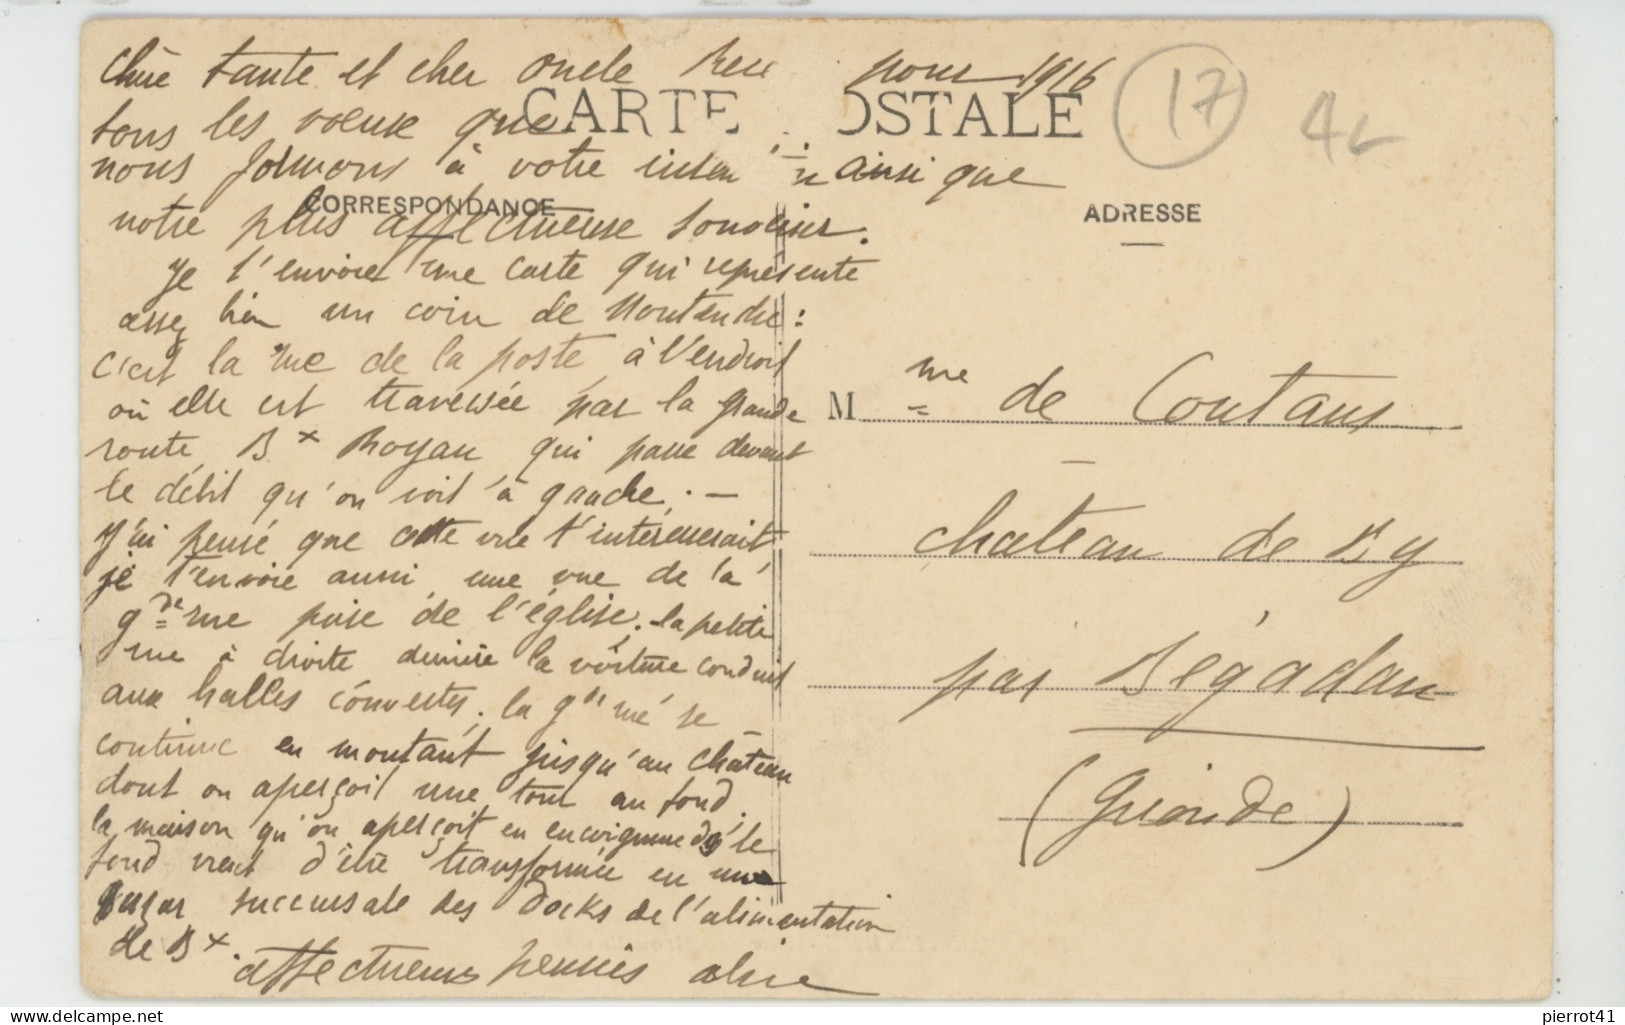 chère tante et cher oncle pour 1916
CARTE POSTALE
tous les voeux que
nous formons à votre ainsi que
CORRESPONDANCE
notre plus affectueuse souvenir.
je t'envoie une carte qui représente
assez bien un coin de Montendre :
c'est la rue de la poste à l'endroit
où elle est traversée par la grande
route Bx Royan qui passe devant
le débit qu'on voit à gauche. –
J'ai pensé que cette vue t'intéresserait
je t'envoie aussi une vue de la
gde rue prise de l'église. la petite
rue à droite derrière la voiture conduit
aux halles couvertes. la gde rue se
continue en montant jusqu'au château
dont on aperçoit une tour au fond.
la maison qu'on aperçoit en encoignure ds le
fond vient d'être transformée en une
succursale des Docks de l'alimentation
de Bx.
affectueuses pensées
17
ADRESSE
M me de Coutans
chateau de By
par Bégadan
(Gironde)
pierrot41